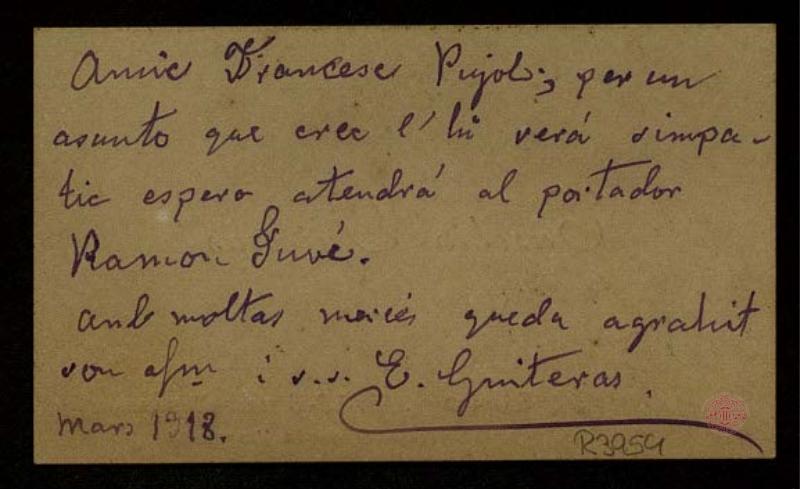 Amic Francesc Pujol; per un
asunto que crec l'hi verá simpa-
tic espero atendrá al portador
Ramon Juvé.
amb moltas mercés queda agrahit
son afm i s.s. E. Guiteras.
Mars 1918.
R3959